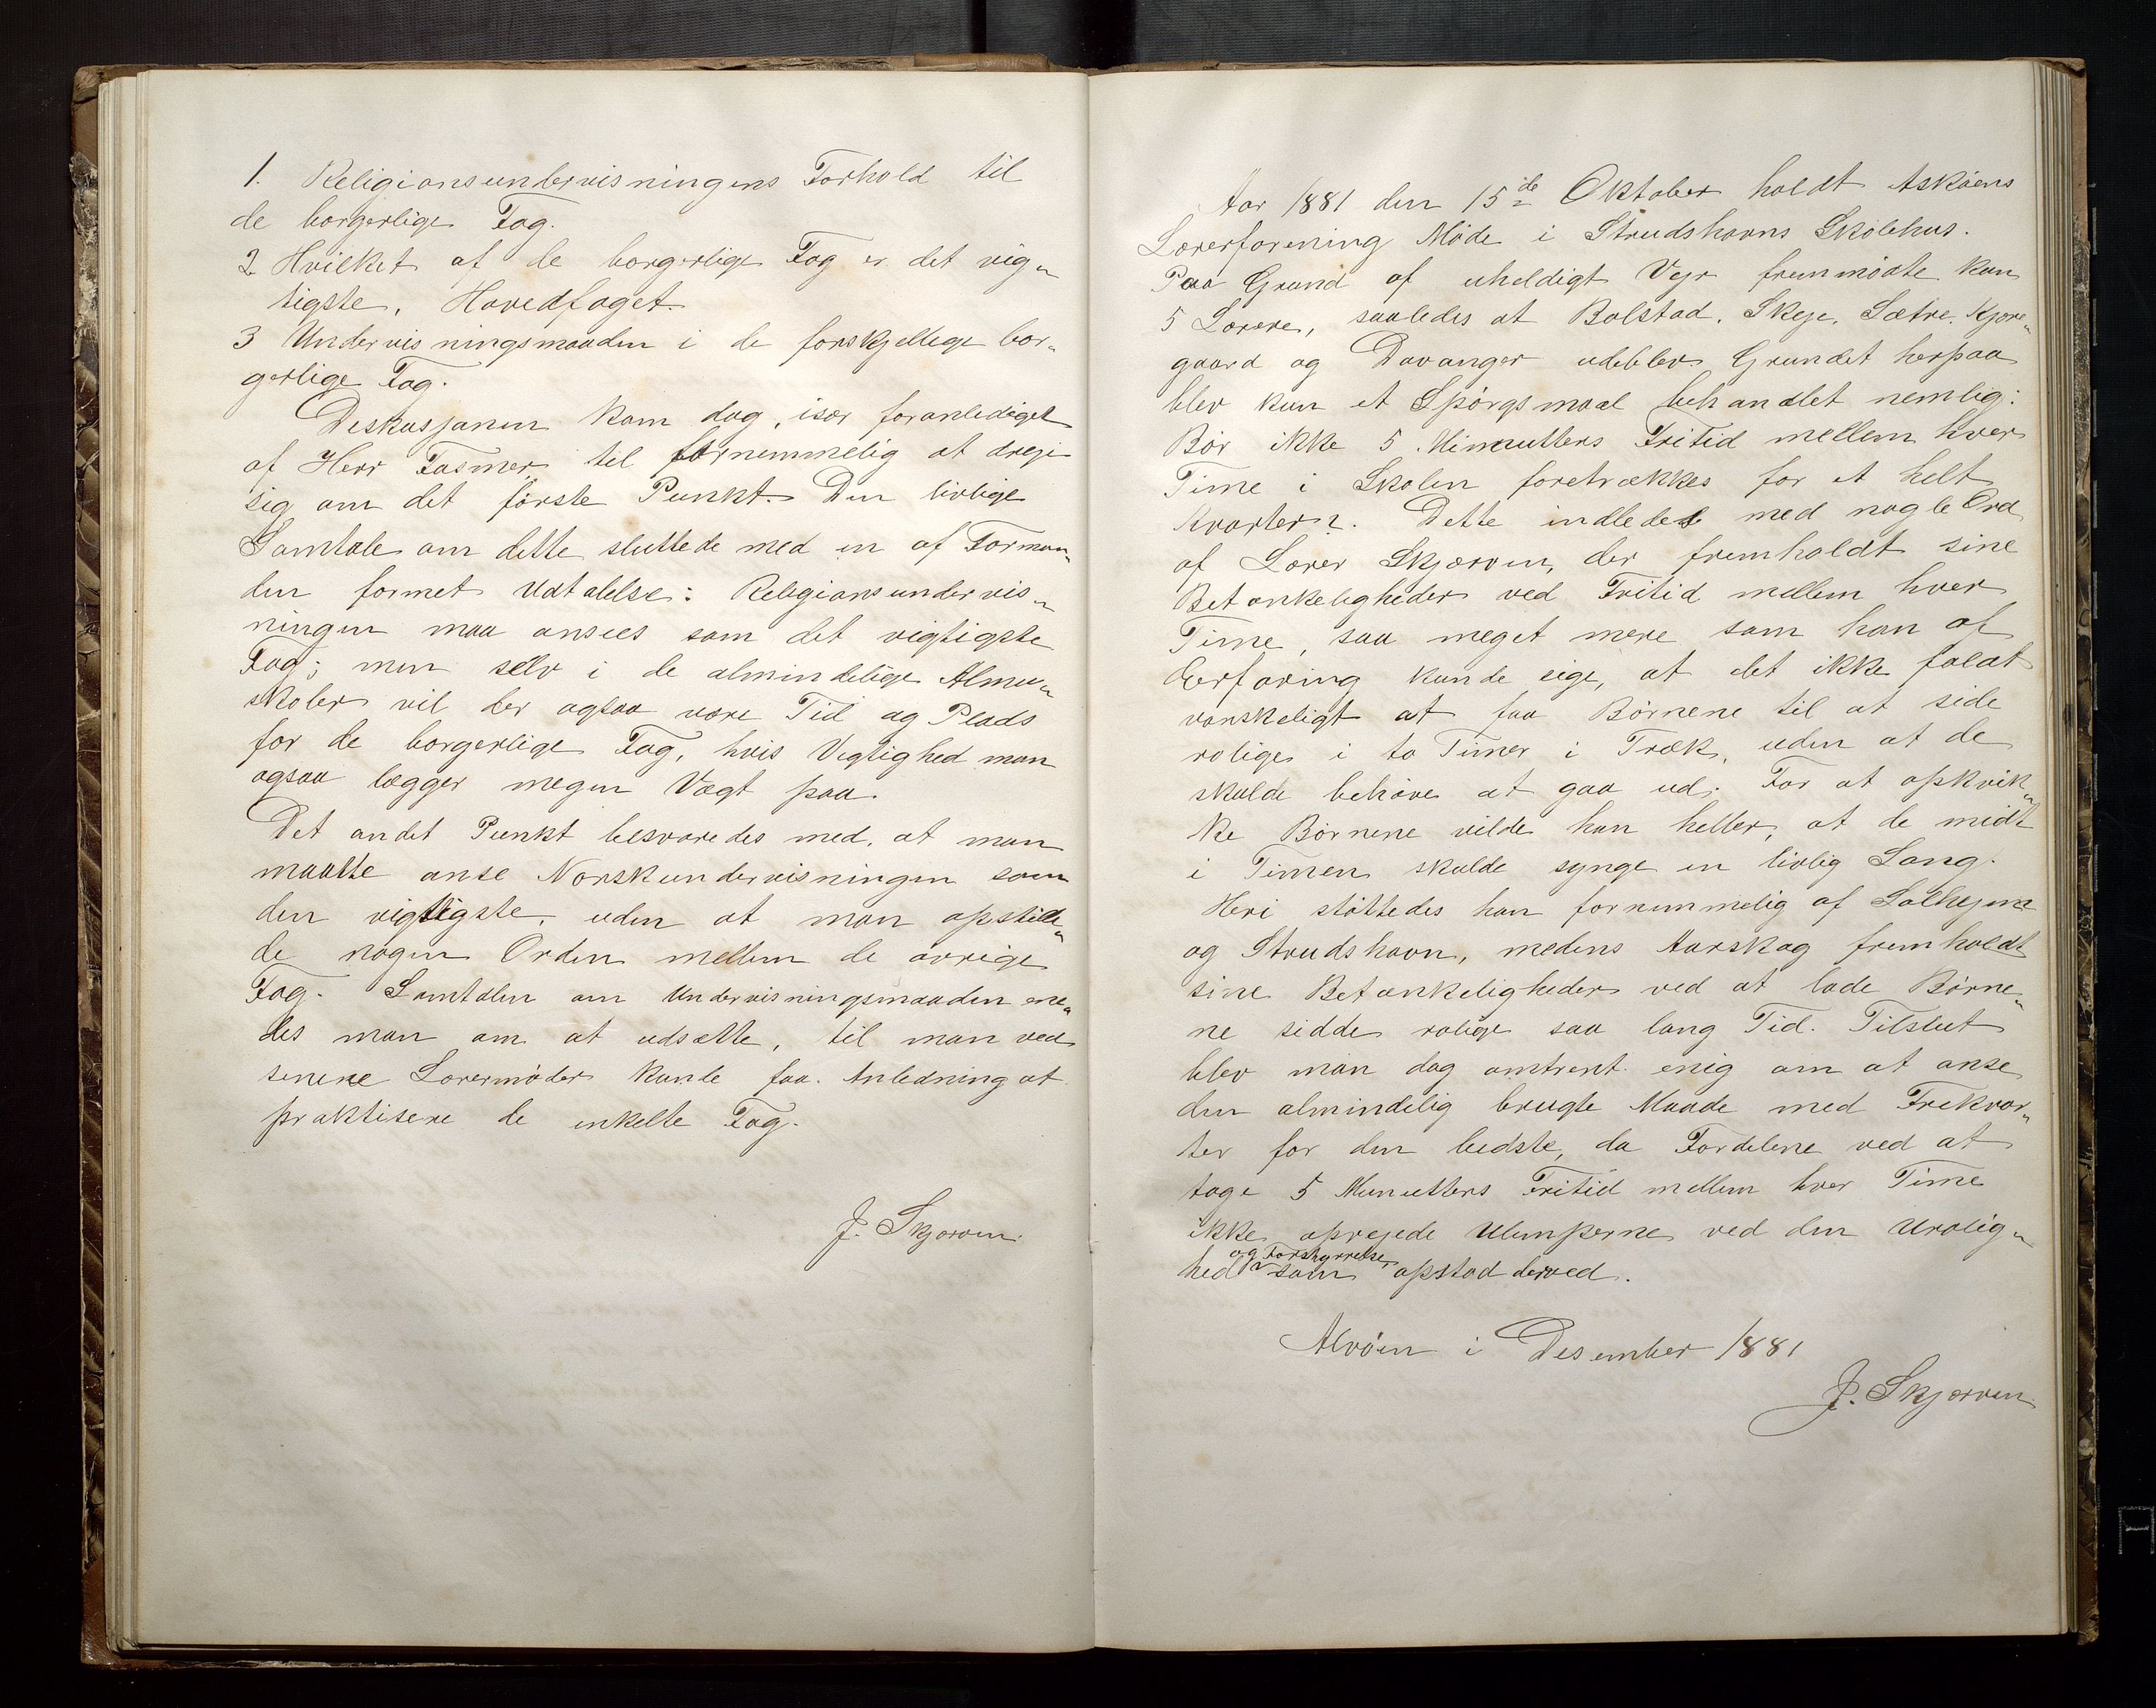 1. Religionsundervisningens Forhold til
de borgerlige Fag.
2 Hvilket af de borgerlige Fag er det vig„
tigste, Hovedfaget.
3 Undervisningsmaaden i de forskjellige bor„
gerlige Fag.
Diskusjonen kom dog, især foranlediget
af Herr Fasmer, til fornemmelig at dreje
sig om det første Punkt. Den livlige
Samtale om dette sluttede med en af Forman„
den formet Udtalelse: Religionsundervis„
ningen maa ansees som det vigtigste
Fag; men selv i de almindelige Almu„
skoler vil der ogsaa være Tid og Plads
for de borgerlige Fag, hvis Vigtighed man
ogsaa lægger megen Vægt paa.
Det andet Punkt besvaredes med, at man
maatte anse Norskundervisningen som
den vigtigste, uden at man opstille„
de nogen Orden mellem de øvrige
Fag. Samtalen om Undervisningsmaaden ene„
des man om at udsætte, til man ved
senere Lærermøder kunde faa Anledning at
praktisere de enkelte Fag.
J. Skjærven.
Aar 1881 den 15de Oktober holdt Askøens
Lærerforening Møde i Strudshavns Skolehus.
Paa Grund af uheldigt Vejr fremmødte kun
5 Lærere, saaledes at Bolstad, Skeje, Sætre, Kjære„
gaard og Davanger udeblev. Grundet herpaa
blev kun et Spørgsmaal behandlet nemlig:
Bør ikke 5 Minutters Fritid mellem hver
Time i Skolen foretrækkes for et helt
Kvarter?. Dette indledet med nogle Ord
af Lærer Skjærven, der fremholdt sine
Betænkeligheder ved Fritid mellem hver
Time, saa meget mere som han af
Erfaring kunde sige, at det ikke faldt
vanskeligt at faa Børnene til at side
rolige i to Timer i Træk, uden at de
skulde behøve at gaa ud. For at opkvik„
ke Børnene vilde han heller, at de midt
i Timen skulde synge en livlig Sang.
Heri støttedes han fornemmelig af Solhejm
og Strudshavn, medens Aarskog fremholdt
sine Betænkeligheder ved at lade Børne„
ne sidde rolige saa lang Tid. Tilslut
blev man dog omtrent enig om at anse
den almindelig brugte Maade med Frikvar„
ter for den bedste, da Fordelene ved at
tage 5 Minutters Fritid mellem hver Time
ikke opvejede Ulemperne ved den Urolig„
hed og Forstyrrelse som opstod derved.
Alvøen i Desember 1881
J. Skjærven